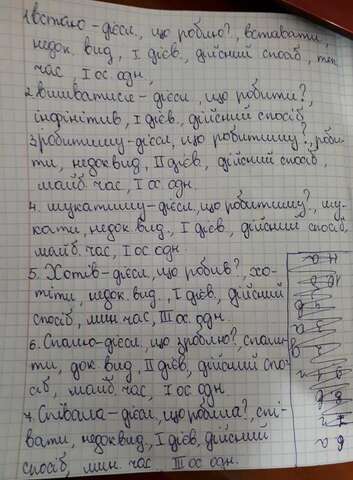 1.встаю - дієсл., що роблю?, вставати,
недок. вид, І дієв., дійсний спосіб, теп.
час, І ос. одн.,
2.вишиватися - дієсл., що робити?,
інфінітив, І дієв., дійсний спосіб
3.робитиму - дієсл., що робитиму?, роби-
ти, недок.вид, ІІ дієв., дійсний спосіб,
майб. час, І ос. одн.
4. шукатиму - дієсл., що робитиму?, шу-
кати, недок. вид., І дієв., дійсний спосіб,
майб. час, І ос. одн.
5. Хотів - дієсл., що робив?, хо-
тіти, недок. вид., І дієв., дійсний
спосіб, мин. час, ІІІ ос. одн.
6. Спалю - дієсл., що зроблю?, спали-
ти, док. вид, ІІ дієв., дійсний спо-
сіб, майб. час, І ос. одн.
7. Співала - дієсл., що робила?, спі-
вати, недок.вид, І дієв, дійсний
спосіб, мин. час., ІІІ ос. одн.